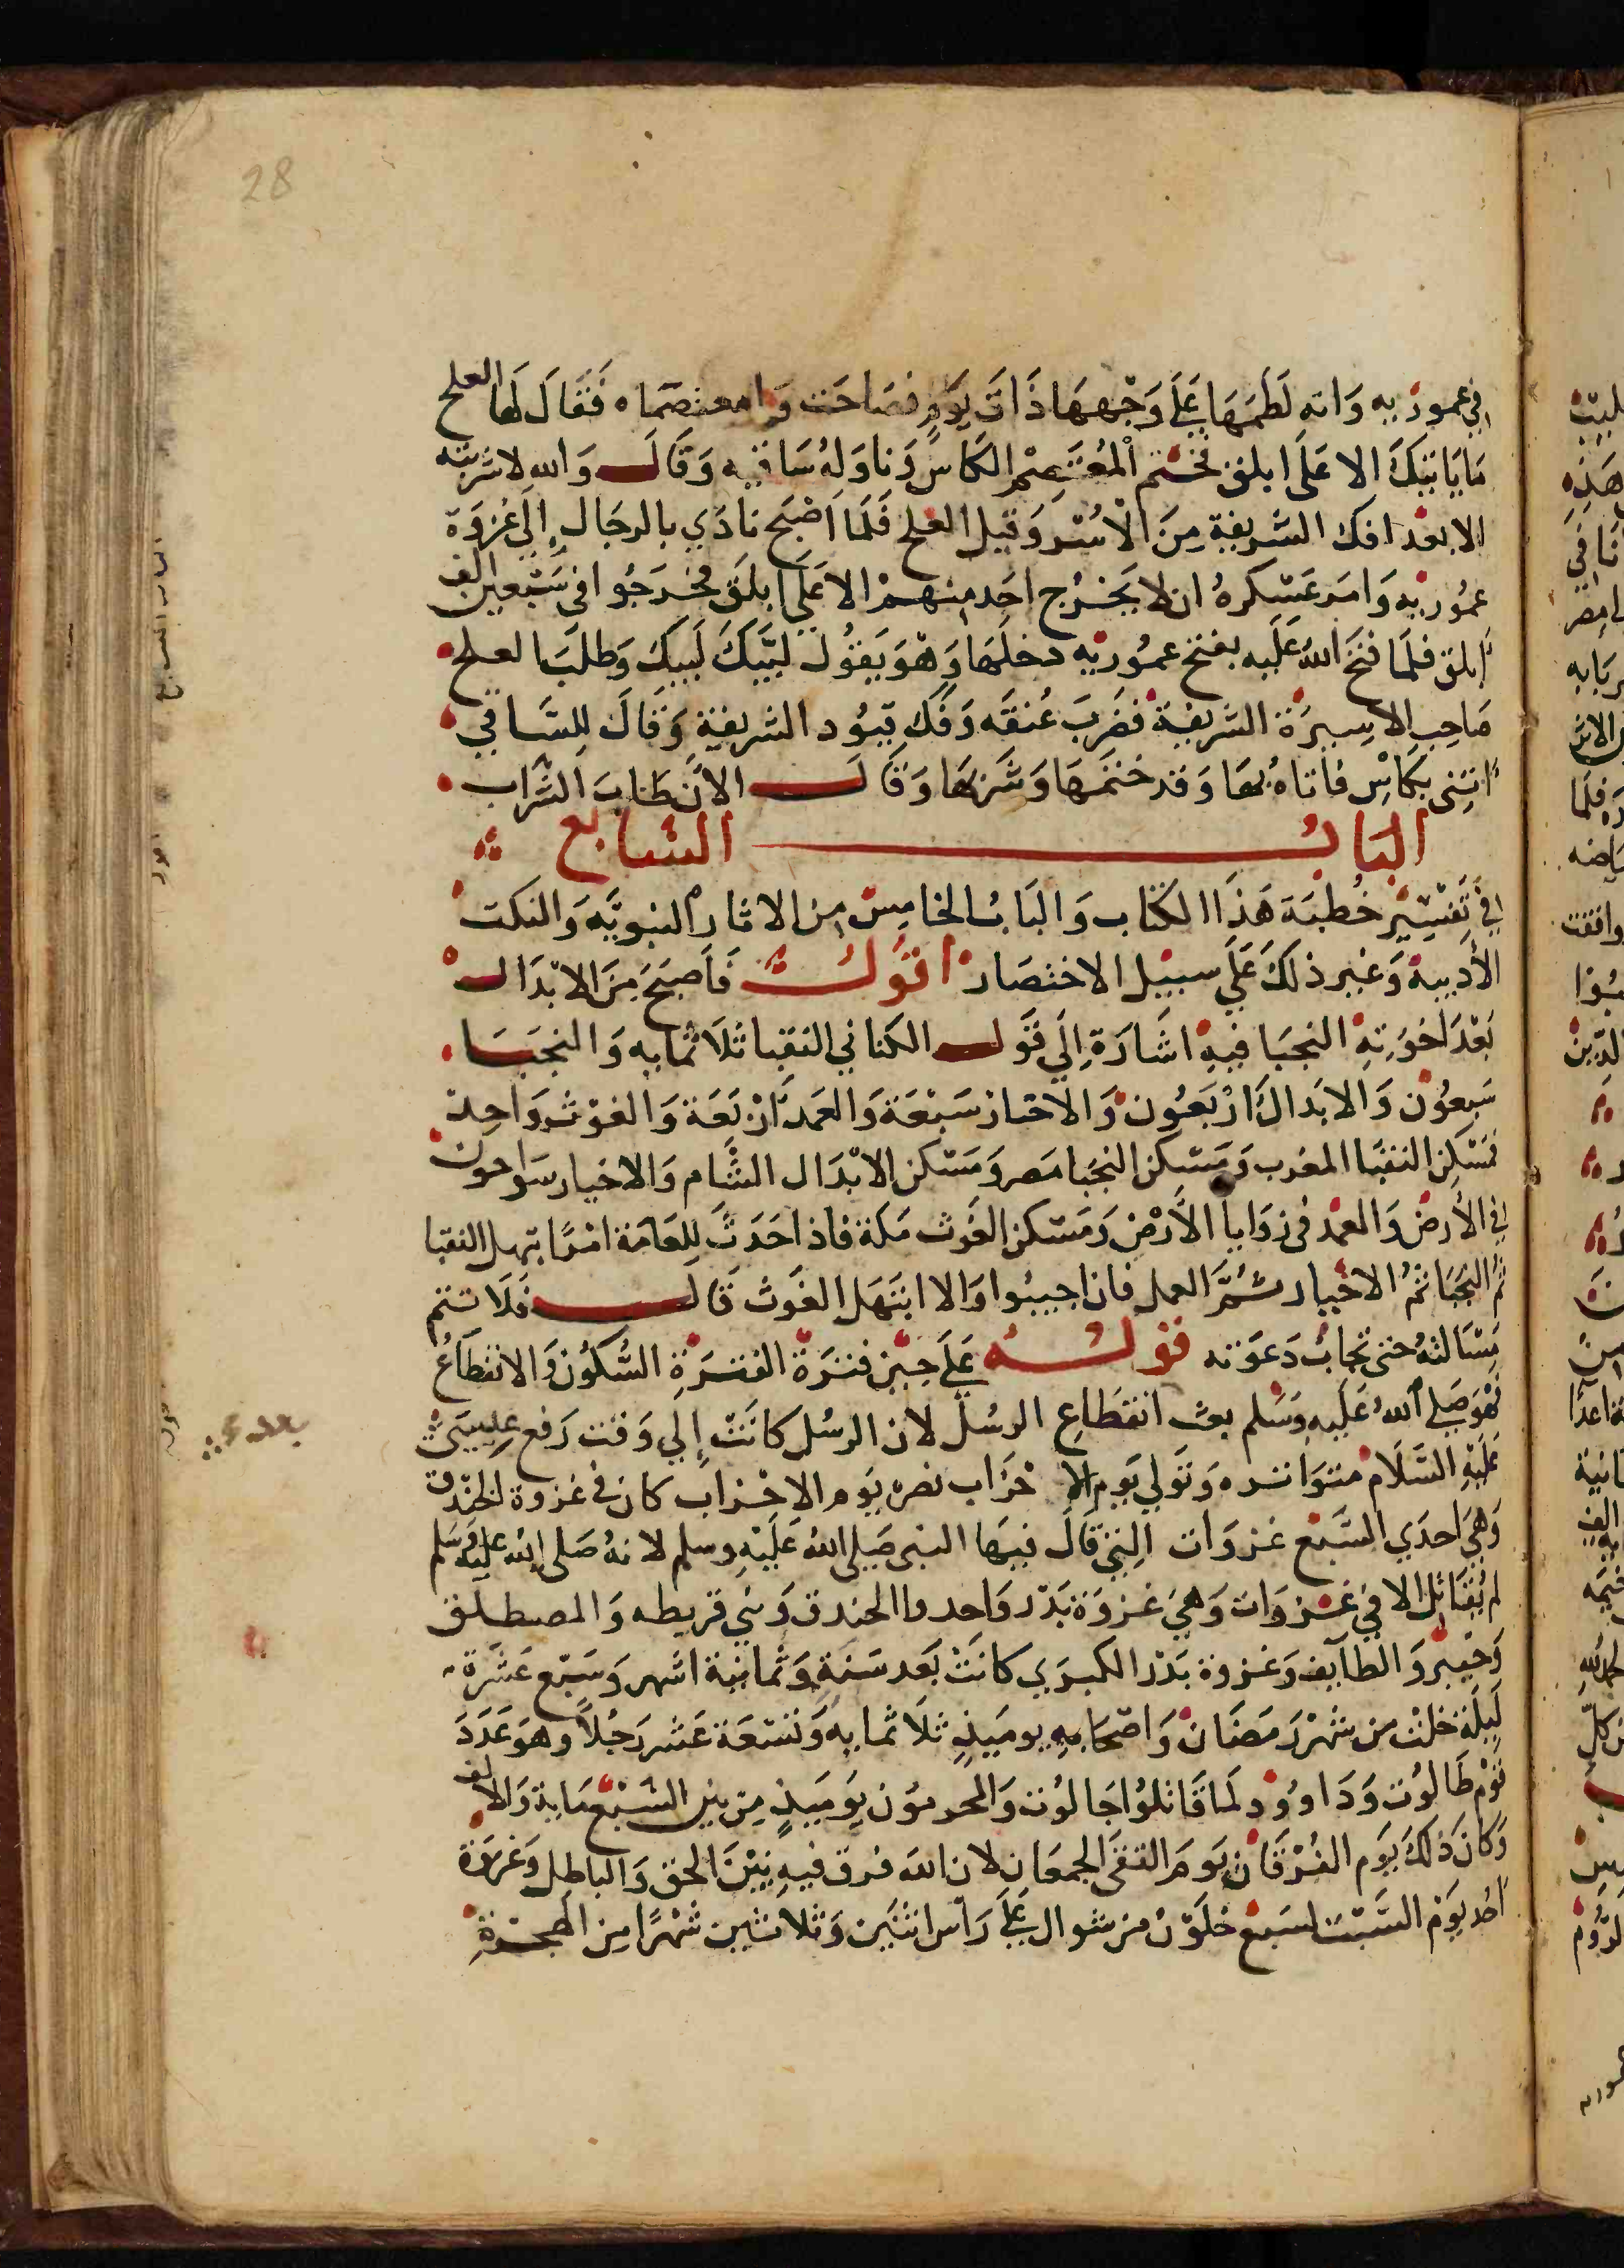 28
في عموريه وانه لطمها علي وجهها ذات يوم فصاحت وامعتصماه فقال لها العلج
ما ياتيك الا علي ابلق فختم المعتصم الكاس وناوله ساقيه وقال والله لاشربته
الا بعد افك الشريفة من الاسر وقتل العلج فلما اصبح نادي بالرحال إلي غزوة
عموريه وامر عسكره ان لا يخرج احد منهم الا علي ابلق فخرجوا في سبعين الف
ابلق فلما فتح الله عليه بفتح عموريه دخلها وهو يقول لبيك لبيك وطلب العلج
صاحب الاسيرة الشريفة فضرب عنقه وفك قيود الشريفة وقال للساقي
ائتني بكاس فاتاه بها وقد ختمها وشربها وقال الان طاب الشراب
الباب السابع
في تفسير خطبة هذا الكتاب والباب الخامس من الاثار النبويه والنكت
الأدبية وغير ذلك علي سبيل الاختصار اقول فأصبح من الابدال
بعد اخوته النجبا فيه اشارة إلي قول الكتاني النقبا ثلاثمايه والنجبا
سبعون والابدال اربعون والاخيار سبعة والعمد اربعة والغوث واحد
فمسكن النقبا المغرب ومسكن النجبا مصر ومسكن الابدال الشام والاخيار سواحون
في الأرض والعمد في زوايا الأرض ومسكن الغوث مكة فاذا حدث للعامة امر ابتهل النقبا
ثم النجبا ثم الاخيار ثم العمد فان اجيبوا والا ابتهل الغوث قال فلا تتم
مسالته حتي تجاب دعوته قوله علي حين فترة الفترة السكون والانقطاع
فهو صلي الله عليه وسلم بعث انقطاع الرسل لان الرسل كانت إلي وقت رفع عيسي
بعد
عليه السلام متواتره وتولي يوم الاحزاب نصره يوم الاحزاب كان في غزوة الخندق
وهي احدي السبع غزوات التي قاتل فيها النبي صلي الله عليه وسلم لانه صلى الله عليه وسلم
لم يقاتل الا في غزوات وهي غزوة بدر واحد والخندق وبني قريظه والمصطلق
وخيبر والطايف وغزوة بدر الكبري كانت بعد سنة وثمانية اشهر وسبع عشرة
ليلة خلت من شهر رمضان واصحابه يوميذ ثلاثمايه وتسعة عشر رجلا وهو عدد
قوم طالوت وداوود لما قاتلوا جالوت والمحرمون يوميذ من بين السبعماية والالف
وكان ذلك يوم الفرقان يوم التقي الجمعان لان الله فرق فيه بين الحق والباطل وغزوة
احد يوم السبت لسبع خلون من شوال علي راس اثنين وثلاثين شهرا من الهجرة